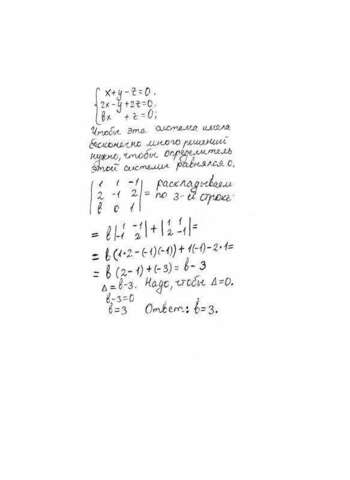 { x+y-z=0,
2x-y+2z=0,
bx +z=0;
Чтобы эта система имела
бесконечно много решений
нужно, чтобы определитель
этой системы равнялся 0.
|1 1 -1|
|2 -1 2| = раскладываем
|b 0 1| по 3-й строке
= b |1 -1; -1 2| + |1 1; 2 -1| =
= b(1·2-(-1)(-1))+1(-1)-2·1=
= b(2-1)+(-3)=b-3
Δ=b-3. Надо, чтобы Δ=0.
b-3=0
b=3 Ответ: b=3.